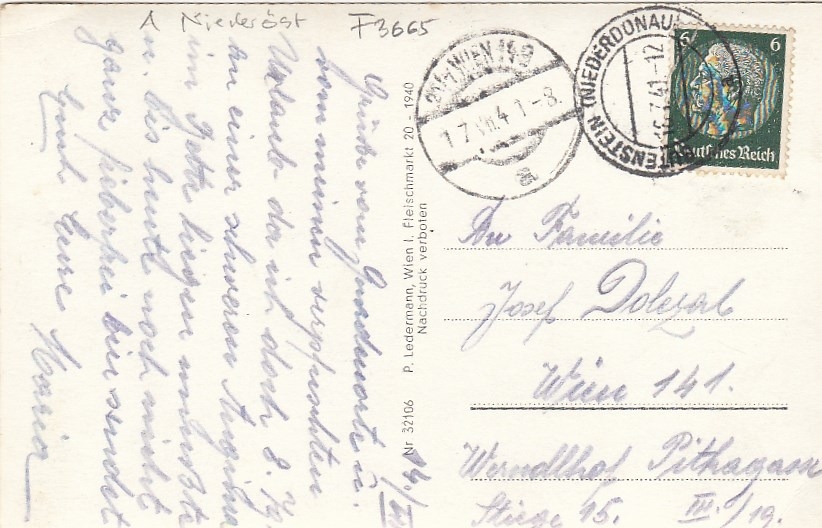 A Niederöst
F3665
Grüße vom Gnadenorte u.
von meinem verpfuschten
Urlaub da ich dort 8 Tg.
an einer schweren Angina
im Bette liegen mußte
u. bis heute noch nicht
ganz fieberfrei bin sendet
Euch Eure Maria
16./VII.
Nr 32106 P. Ledermann, Wien I. Fleischmarkt 20 - 1940
Nachdruck verboten
WIEN
17.VII.41-8.
a
(NIEDERDONAU)
16.7.41-12
6 6
Deutsches Reich
An Familie
Josef Dolezal
Wien 141.
Werndlhof
Stiege 15. III./19.